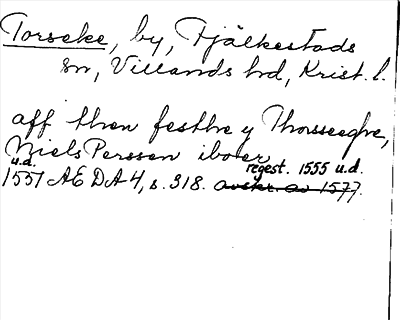 Torseke, by, Fjälkestads
sn, Villands hd, Krist. l.
aff then festhe y Thorsseghre,
Niels Perssen iboer
u.d. regest. 1555 u.d.
1551 AEDA 4, s. 318. avskr. av 1577.